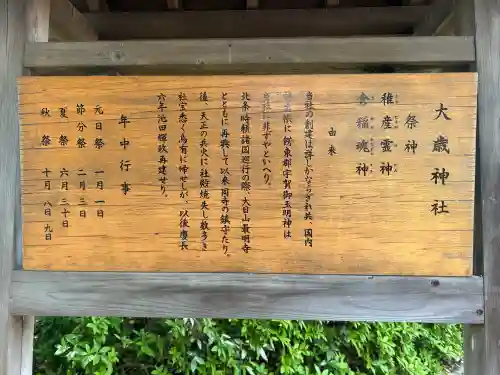 大歳神社
祭神
稚産霊神
倉稲魂神
由来
当社の創建は詳かならざれ共、国内
神名帳に餝東郡宇賀御玉明神は
当社に非ずやといへり。
北条時頼諸国巡行の際、大日山最明寺
とともに再興して以来同寺の鎮守たり。
後、天正の兵火に社殿焼失し数多き
社宝悉く烏有に帰せしが、以後慶長
六年池田輝政再建せり。
年中行事
元日祭 一月一日
節分祭 二月三日
夏祭 六月三十日
秋祭 十月八日九日